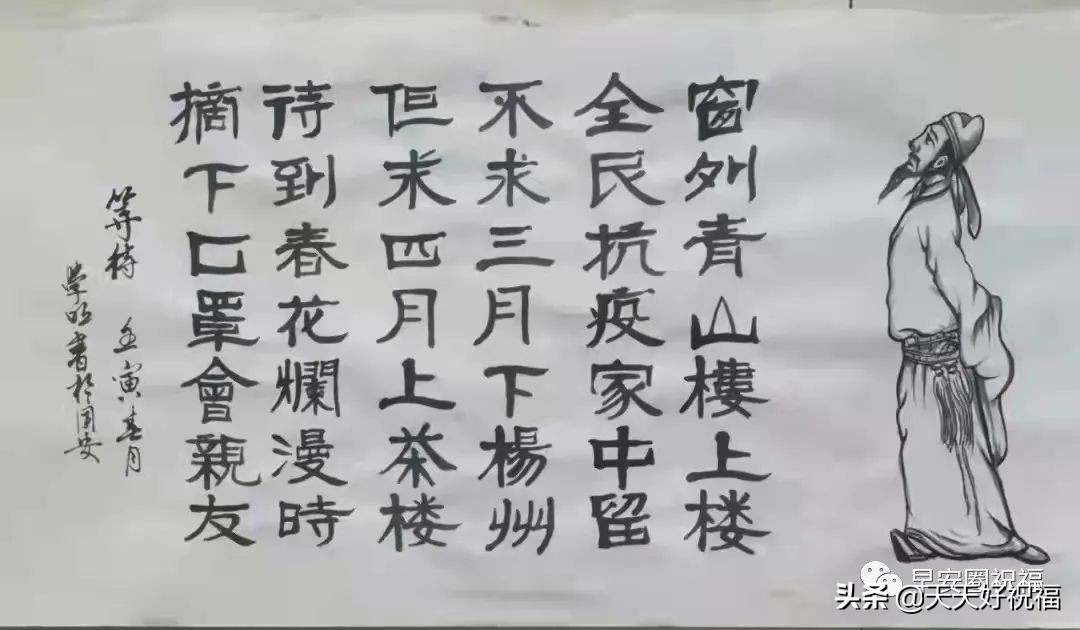 窗外青山樓上楼
全民抗疫家中留
不求三月下楊州
但求四月上茶楼
待到春花爛漫時
摘下口罩會親友
等待 壬寅春月
學明書於固安
早安圈祝福
头条 @天天好祝福